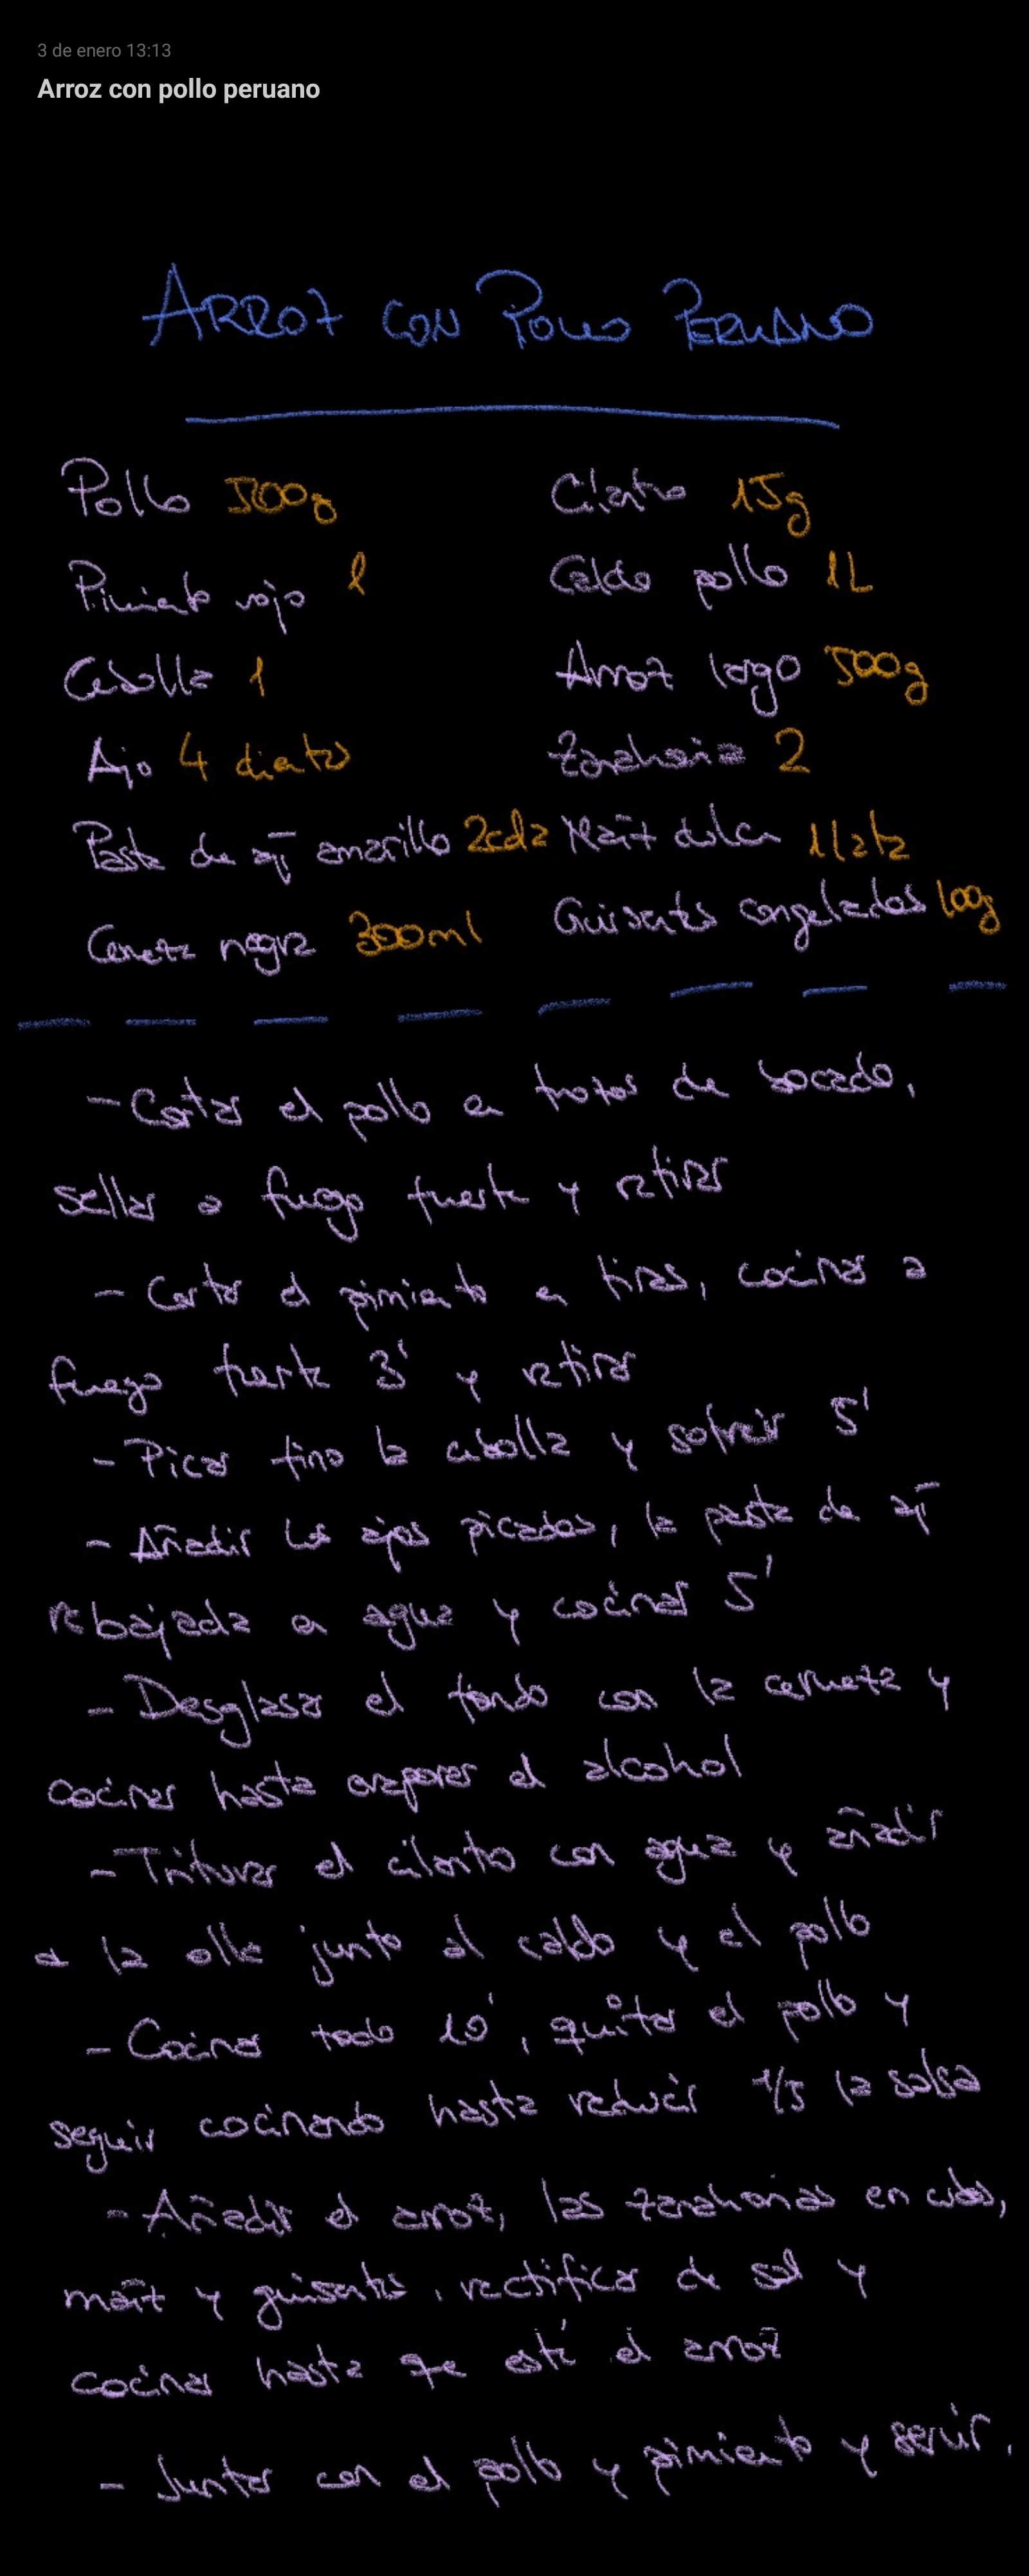 3 de enero 13:13
Arroz con pollo peruano
ARROZ CON POLLO PERUANO
Pollo 500g
Cilantro 15g
Pimiento rojo 1
Caldo pollo 1L
Cebolla 1
Arroz largo 500g
Ajo 4 dientes
Zanahoria 2
Pasta de ají amarillo 2cda
Maíz dulce 1 lata
Cerveza negra 300ml
Guisantes congelados 100g
- Cortar el pollo en trozos de bocado,
sellar a fuego fuerte y retirar
- Cortar el pimiento en tiras, cocinar a
fuego fuerte 3' y retirar
- Picar fino la cebolla y sofreír 5'
- Añadir los ajos picados, la pasta de ají
rebajada en agua y cocinar 5'
- Desglasar el fondo con la cerveza y
cocinar hasta evaporar el alcohol
- Triturar el cilantro con agua y añadir
a la olla junto al caldo y el pollo
- Cocinar todo 10', quitar el pollo y
seguir cocinando hasta reducir la salsa
- Añadir el arroz, las zanahorias en cubos,
maíz y guisantes, rectificar de sal y
cocinar hasta que esté el arroz
- Juntar con el pollo y pimiento y servir.